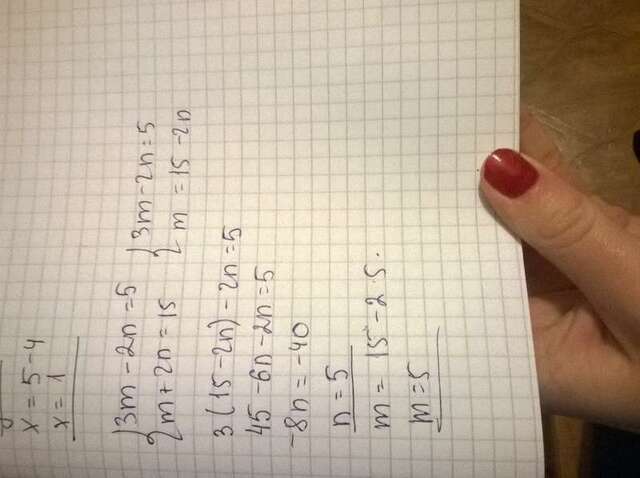 x = 5 - 4
x = 1
{3m - 2n = 5 {3m - 2n = 5
{m + 2n = 15 {m = 15 - 2n
3(15 - 2n) - 2n = 5
45 - 6n - 2n = 5
-8n = -40
n = 5
m = 15 - 2·5.
m = 5